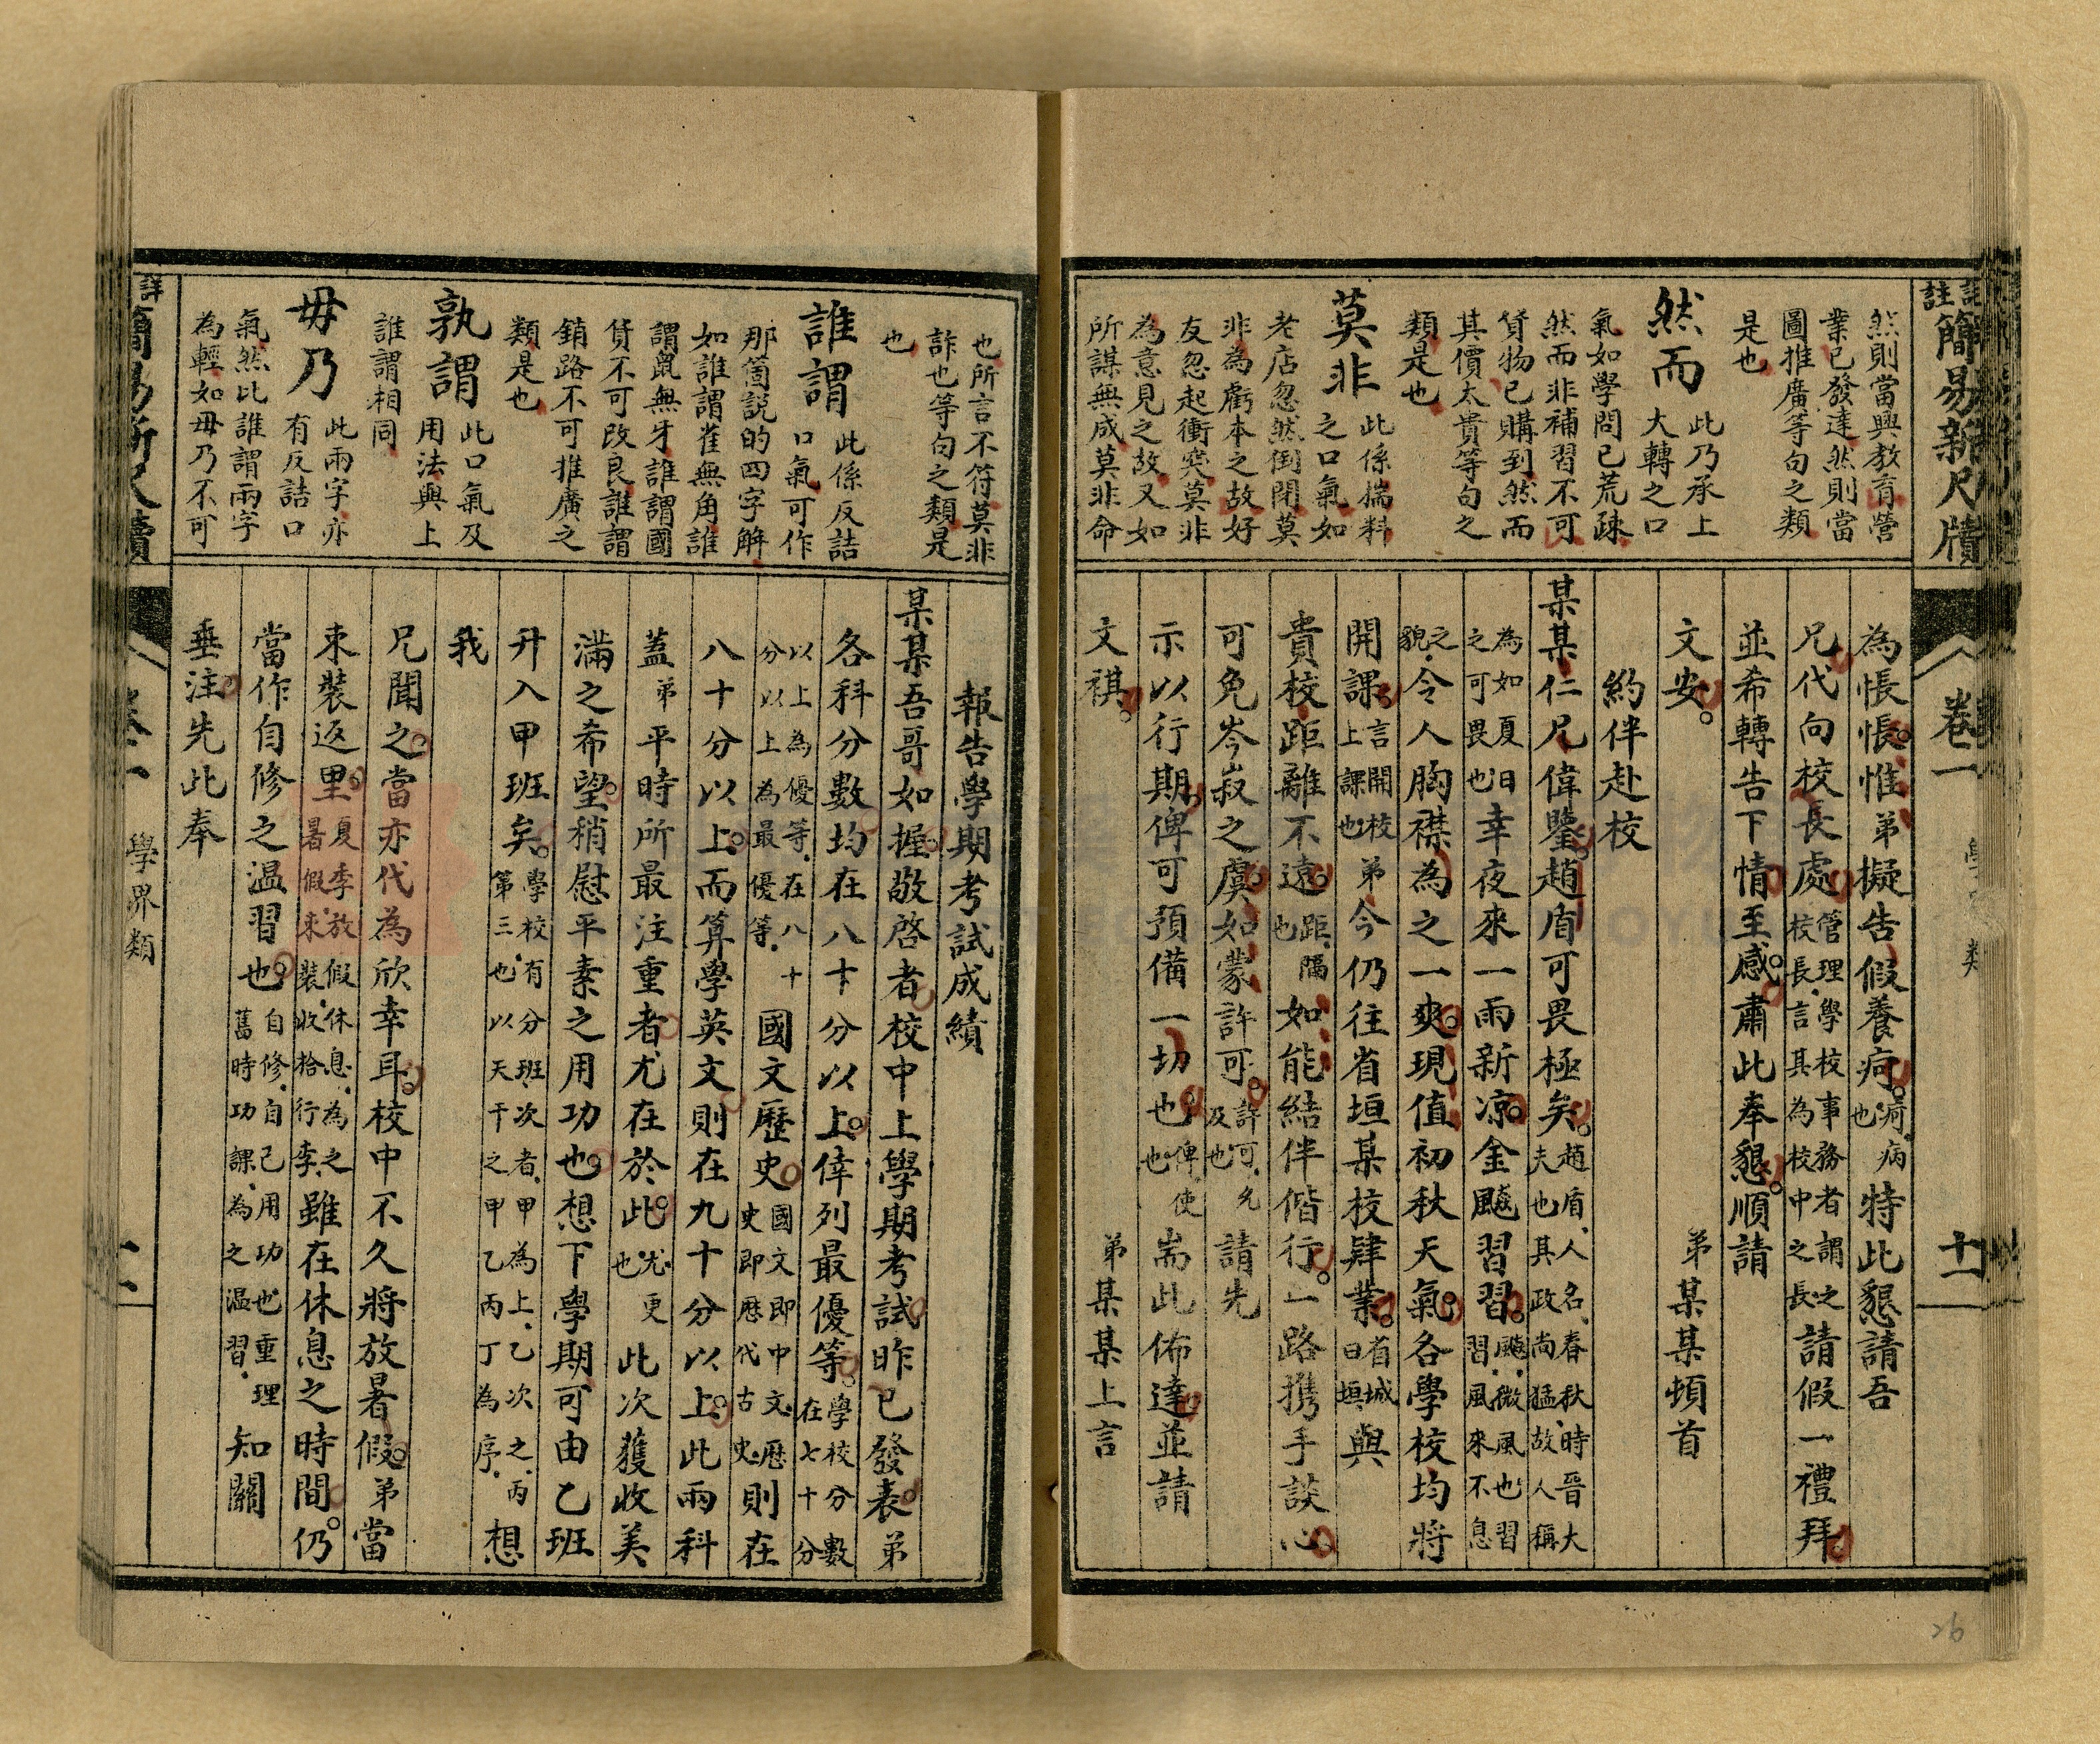 詳註簡易新尺牘
卷一
十一
然則當興教育營
業已發達然則當
圖推廣等句之類
是也
然而
此乃承上
大轉之口
氣如學問已荒疎
然而非補習不可
貨物已購到然而
其價太貴等句之
類是也
莫非
此係揣料
之口氣如
老店忽然倒閉莫
非為虧本之故好
友忽起衝突莫非
為意見之故又如
所謀無成莫非命
為悵悵惟弟擬告假養疴疴病也特此懇請吾
兄代向校長處管理學校事務者謂之校長言其為校中之長請假一禮拜
並希轉告下情至感肅此奉懇順請
文安
弟某某頓首
約伴赴校
某某仁兄偉鑒趙盾可畏極矣趙盾人名春秋時晉大夫也其政尚猛故人稱
為如夏日之可畏也幸夜來一雨新凉金飈習習飈微風也習習風來不息
之貌令人胸襟為之一爽現值初秋天氣各學校均將
開課言開校上課也弟今仍往省垣某校肄業省城曰垣與
貴校距離不遠距隔也如能結伴偕行一路携手談心
可免岑寂之虞如蒙許可許可允及也請先
示以行期俾可預備一切也俾使也耑此佈達並請
文祺
弟某某上言
也所言不符莫非
詐也等句之類是
也
誰謂
此係反詰
口氣可作
那箇說的四字解
如誰謂雀無角誰
謂鼠無牙誰謂國
貨不可改良誰謂
銷路不可推廣之
類是也
孰謂
此口氣及
用法與上
誰謂相同
毋乃
此兩字亦
有反詰口
氣然比誰謂兩字
為輕如毋乃不可
報告學期考試成績
某某吾哥如握敬啓者校中上學期考試昨已發表弟
各科分數均在八十分以上倖列最優等學校分數在七十分
以上為優等在八十分以上為最優等國文歷史國文即中文歷史即歷代古史則在
八十分以上而算學英文則在九十分以上此兩科
蓋弟平時所最注重者尤在於此尤更也此次獲收美
滿之希望稍慰平素之用功也想下學期可由乙班
升入甲班矣學校有分班次者甲為上乙次之丙第三也以天干之甲乙丙丁為序想
我
兄聞之當亦代為欣幸耳校中不久將放暑假弟當
束裝返里夏季放假休息為之暑假束裝收拾行李雖在休息之時間仍
當作自修之温習也自修自己用功也重理舊時功課為之溫習知關
垂注先此奉
學界類